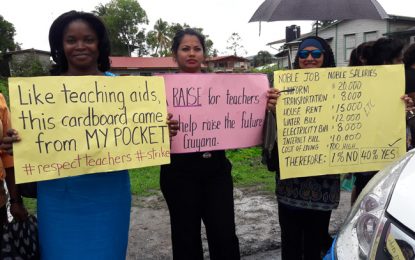 Like teaching aids,
this cardboard came
from MY POCKET
#respectteachers #strike
RAISE for teachers
help raise the future
Guyana.
NOBLE JOB NOBLE SALARIES
UNIFORM $ 20,000
TRANSPORTATION $ 8,000
HOUSE RENT $ 15,000
WATER BILL $ 12,000
ELECTRICITY $ 8,000
INTERNET BILL $ 10,000
COST OF LIVING : TOO HIGH
THEREFORE: 1% NO 40% YES